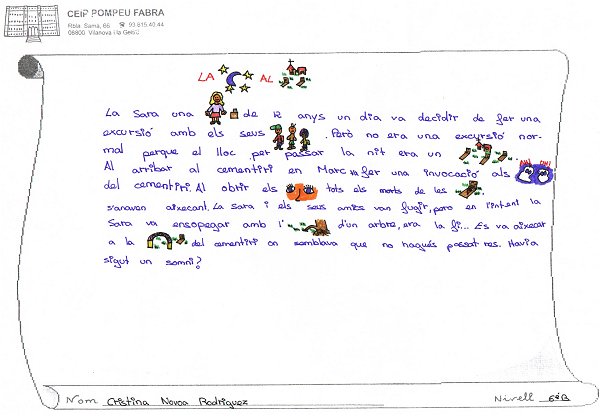 CEIP POMPEU FABRA
Rbla. Samà, 66 ☎ 93 815 40 44
08800 Vilanova i la Geltrú
LA AL
La Sara una de 12 anys un dia va decidir de fer una
excursió amb els seus . Però no era una excursió nor-
mal perque el lloc per passar la nit era un .
Al arribar al cementiri en Marc va fer una invocació als
del cementiri. Al obrir els tots els morts de les
s'anaven aixecant. La Sara i els seus amics van fugir, pero en l'intent la
Sara va ensopegar amb l' d'un arbre, era la fi... Es va aixecar
a la del cementiri on semblava que no hagués passat res. Havia
sigut un somni?
Nom Cristina Novoa Rodriguez Nivell 6èB